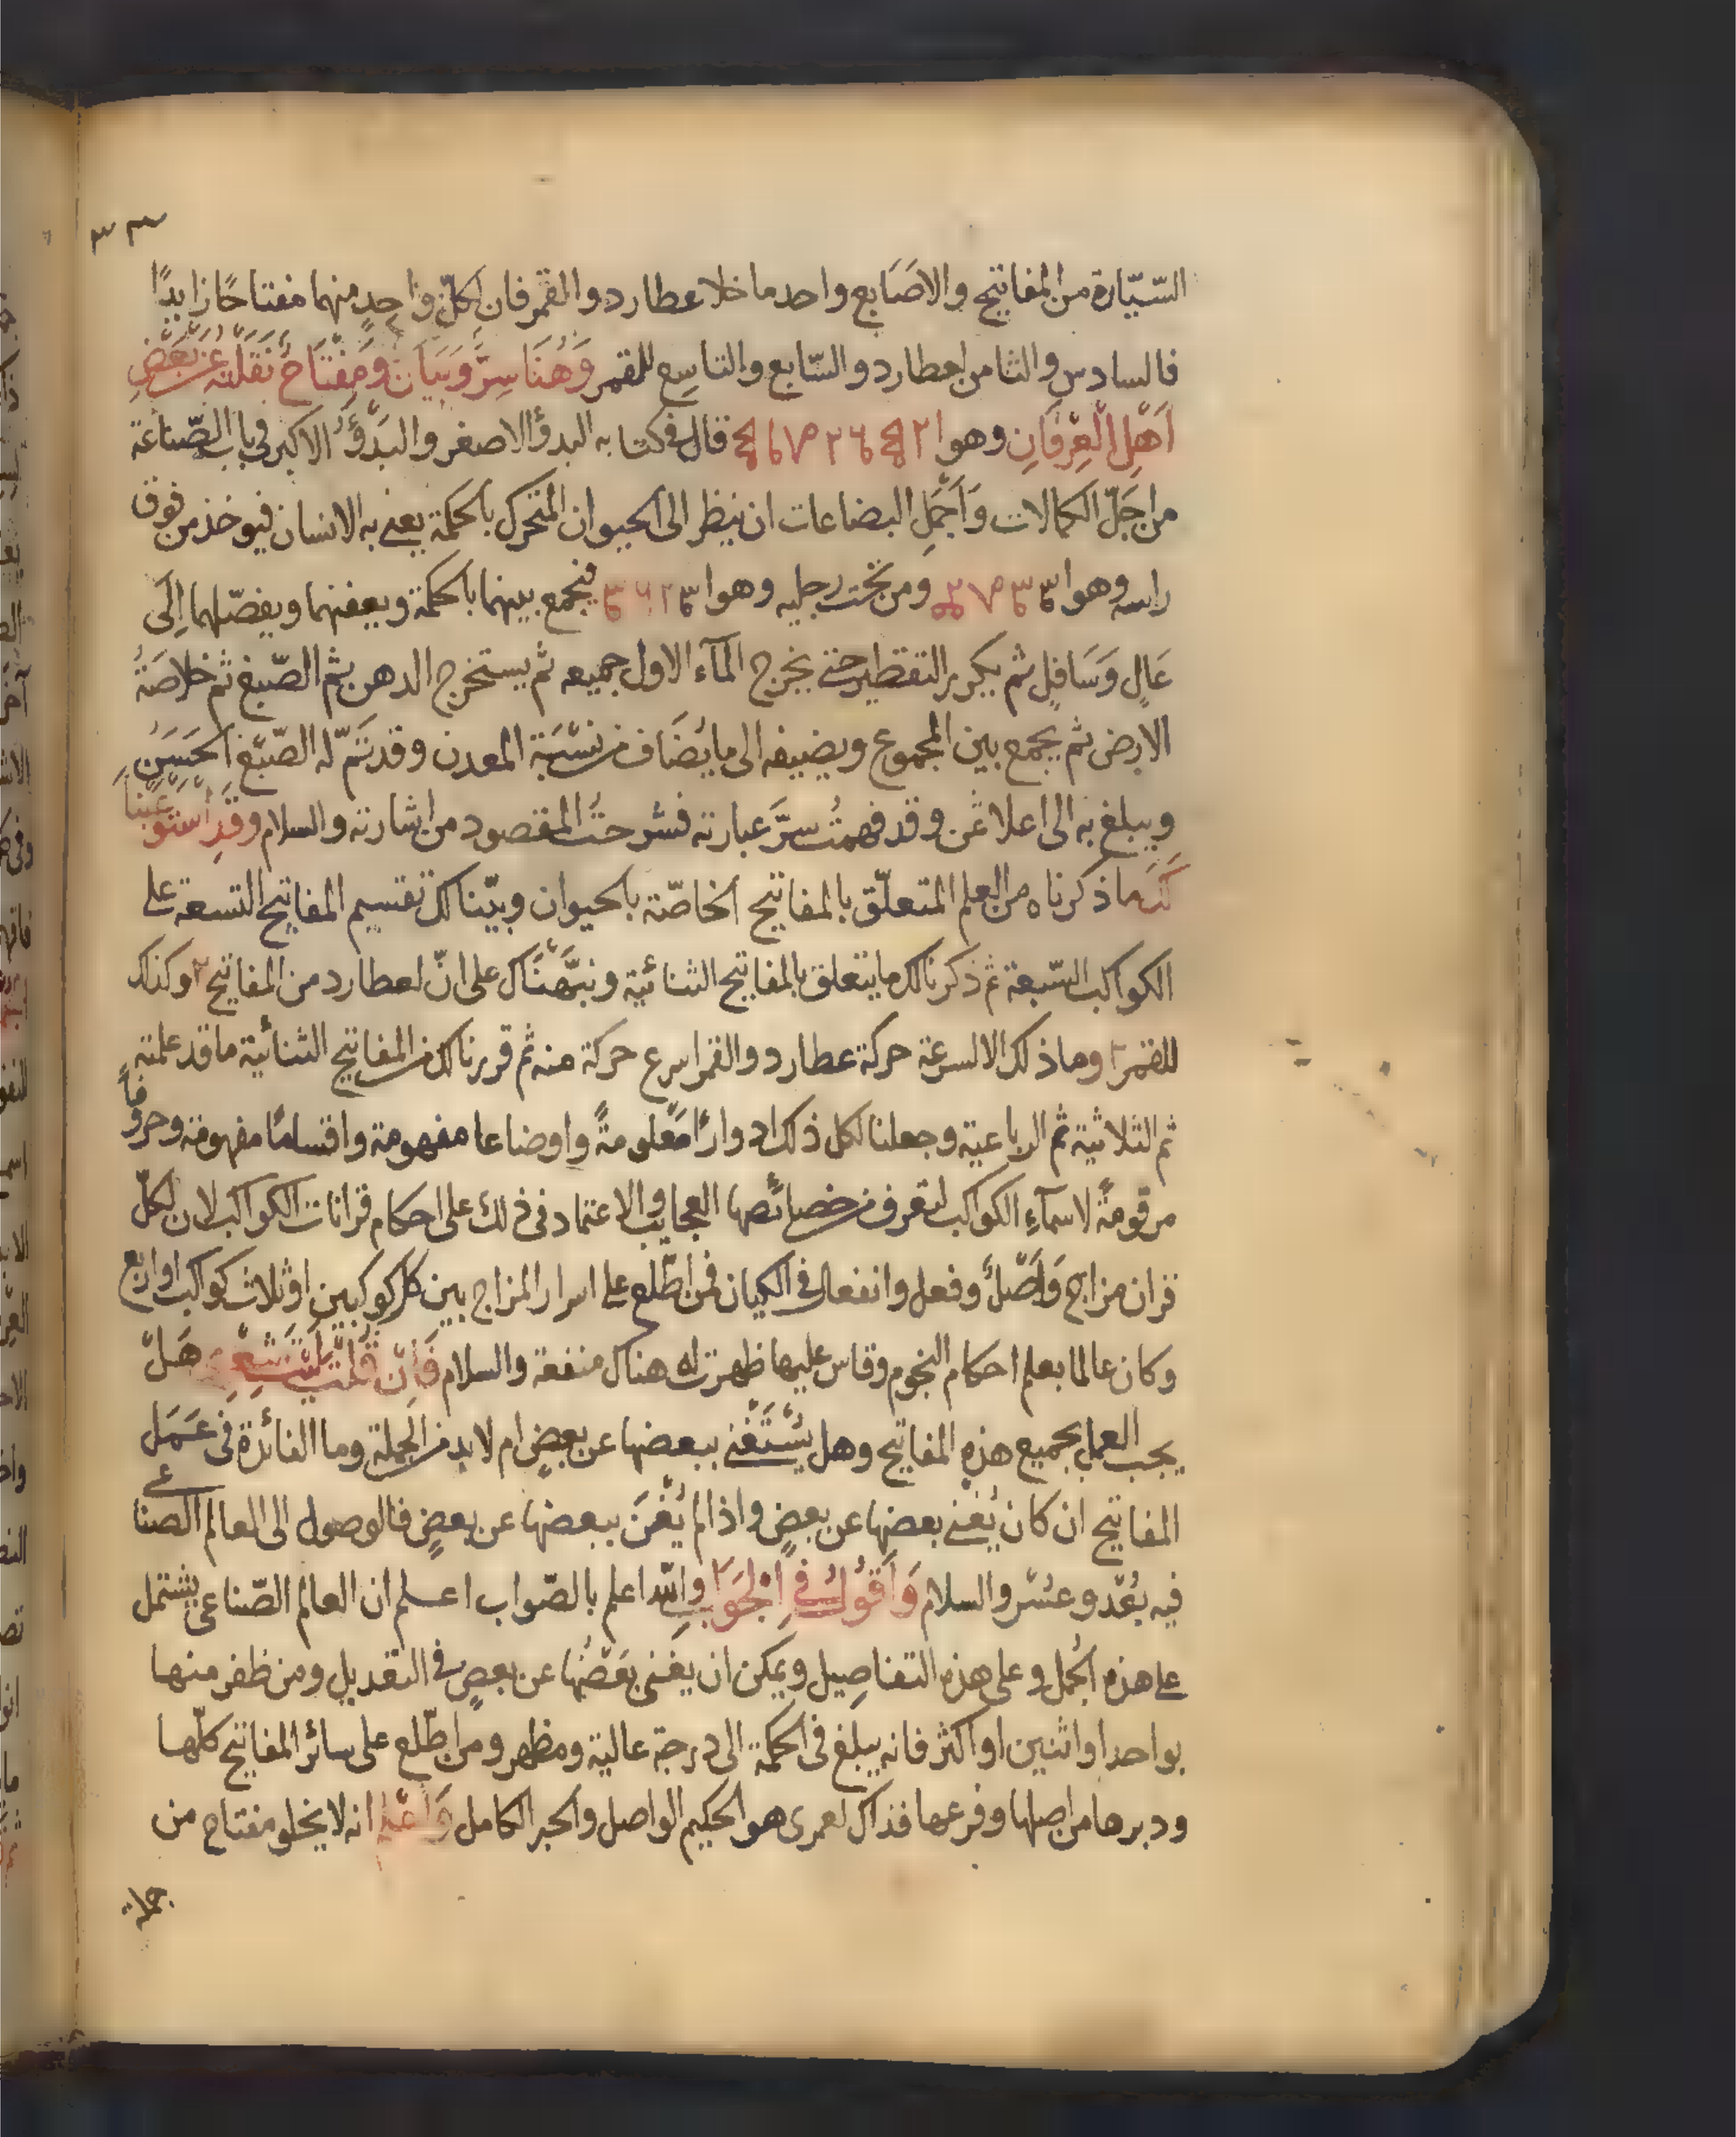 ٣٣
السّيّارة من المفاتيح والاصَابع واحد ما خلا عطارد والقمر فان لِكلّ وَاحِدٍ منهما مفتاحًا زايدًا
فالسادس والثامن لعطارد والسّابع والتاسع للقمر وَهُنَا سِرٌّ وَبَيَانٌ وَمِفْتَاحٌ نَقَلْتُه عَنْ بَعْضِ
اَهْلِ الْعِرْفَانِ وهوا قال في كتابه البدؤ الاصغر والبَدْؤُ الاكبر في باب الصّناعة
من اجَلّ الكمالات وَاَجْمَلِ البضاعات ان ينظر الى الحيوان المتحرك بالحكمة يعني به الانسان فيوخذ من فوق
راسه وهوا ومن تحت رجليه وهوا فيجمع بينهما بالحكمة ويعفنهما ويفصّلهما اِلَى
عَالٍ وَسَافِلٍ ثم يكرر التقطير حتى يخرج المآء الاول جميعه ثم يستخرج الدهن ثم الصّبغ ثم خلاصَةُ
الارض ثم يجمع بين المجموع ويضيفه الى ما يُضَاف من نِسْبَة المعدن وقد تَمّ له الصّبْغ الحَسَنُ
ويبلغ به الى اعلا ثمن وقد فهمتُ سِرَّ عبارته فشرحتُ المقصود من اشارته والسلام وقَدِ اَسْتَوْعَبْنَا
لَكَ ما ذكرناه من العلم المتعلّق بالمفاتيح الخاصّة بالحيوان وبيّنا لك تقسيم المفاتيح التسعة على
الكواكب السّبعة ثم ذكرنا لك ما يتعلق بالمفاتيح الثنائية ونبّهْنَاك على انّ لعطارد من المفاتيح ٢ وكذلك
للقمر ٢ وما ذلك الا لسرعة حركة عطارد والقمر اسرع حركة منه ثم قررنا لك من المفاتيح الثنائية ما قد علمته
ثم الثلاثية ثم الرباعية وجعلنا لكل ذلك ادوارًا مَعْلومةً واوضاعا مفهومة واقسامًا مفهومة وحروفًا
مرقومةً لاسمآءِ الكواكب لتعرف من خصائصها العجايب والاعتماد في ذلك على احكام قرانات الكواكب لان لكلّ
قران مزاج وَاَصْلٌ وفعل وانفعال في الكيان فمن اطّلع على اسرار المزاج بين كل كوكبين او ثلاث كواكب او اربع
وكان عالما بعلم احكام النجوم وقاس عليها ظهرت له هناك منفعة والسلام فَاِنْ قُلْتَ لَيْتَ شِعْرِي هَلْ
يجب العمل بجميع هذه المفاتيح وهل يُسْتَغْنى ببعضها عن بعضٍ ام لا بد من الجملة وما الفائدة في عَمَلِ
المفاتيح ان كان يُغني بعضها عن بعضٍ واذا لم يُغْنَ ببعضها عن بعضٍ فالوصول الى العالم الصناعي
فيه بُعْد وعسْر والسلام وَاَقُولُ فِي الْجَوَابِ والله اعلم بالصّواب اعلم ان العالم الصّناعي يشتمل
على هذه الجُمل وعلى هذه التفاصِيل ويمكن ان يغنى بَعْضُها عن بعضٍ في التعديل ومن ظفر منها
بواحد او اثنين او اكثر فانه يبلغ في الحكمة الى درجة عالية ومظهر ومن اطّلع على سائر المفاتيح كلّها
ودبرها من اصلها وفرعها فذاك لعمرى هو الحكيم الواصل والحبر الكامل وَاعْلَم انه لا يخلو مفتاح من
جملة